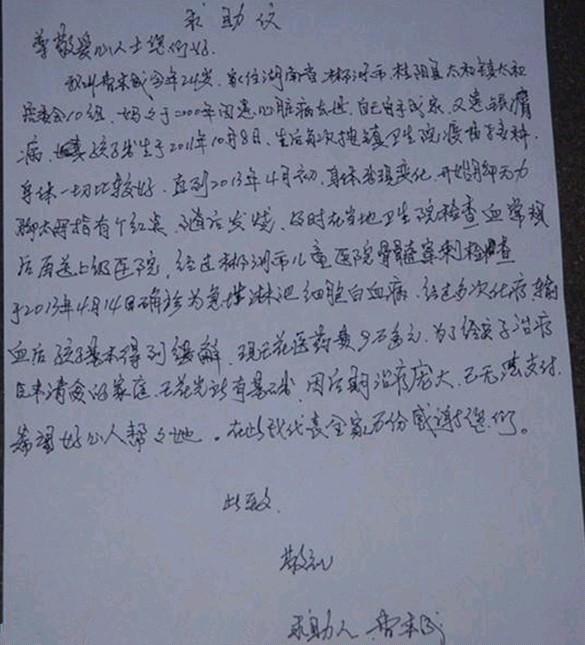 求助仪
尊敬爱心人士您们好.
我叫曹本成今年24岁, 家住湖南省郴州市, 桂阳县太和镇太和
居委会10组, 妈妈于2000年因患心脏病去世, 自己白手成家, 又患
病, 孩子出生于2011年10月8日, 生后每次按镇卫生院疫苗
身体一切比较好, 直到2013年4月初, 身体出现变化, 开始脚无力
脚大拇指有个红点, 随后发烧, 及时在当地卫生院检查血常规
后再送上级医院, 经过郴州市儿童医院骨髓穿刺检查
于2013年4月14日确诊为急性淋巴细胞白血病, 经过多次化疗输
血后孩子基本得到缓解, 现已花医药费9万多元, 为了给孩子治疗
本清贫的家庭, 已花光所有, 因后期治疗庞大, 已无法支付,
希望好心人帮帮她。在此我代表全家万份感谢您们。
此致
敬礼
求助人 曹本成